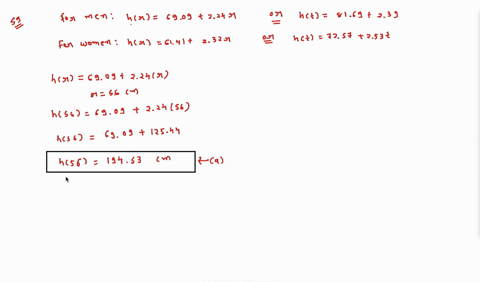 59 for men: h(x) = 69.09 + 2.24x or h(t) = 81.69 + 2.39
For women: h(x) = 61.41 + 2.32x or h(t) = 72.57 + 2.53t
h(x) = 69.09 + 2.24(x)
x = 56 cm
h(56) = 69.09 + 2.24(56)
h(56) = 69.09 + 125.44
h(56) = 194.53 cm ←(a)